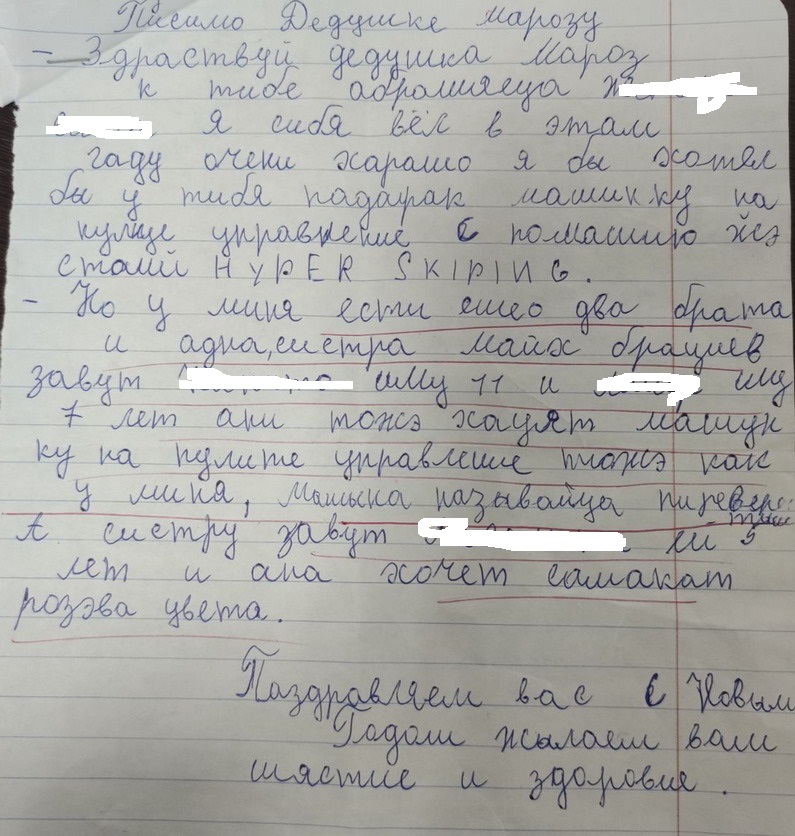 Письмо Дедушке марозу
– Здраствуй дедушка Мароз
к тибе абрашяеца
. Я сибя вёл в этам
гаду очени харашо я бы хотял
бы у тибя падарак машинку на
пулце управление с помашию йсэ
сталй HYPER SKIPING.
– Но у миня ести ешео два брата
и адна, систра майх брациев
завут иму 11 и иму
7 лет ани тожэ хацят машун
ку на пулите управление тожэ как
у миня, Машына называйца пиревёр
тыш
А систру завут ей 5
лет и ана хочет самакат
розэва цвета.
Паздравляем вас с Новым
Годом жылаем вам
шястие и здоровие.